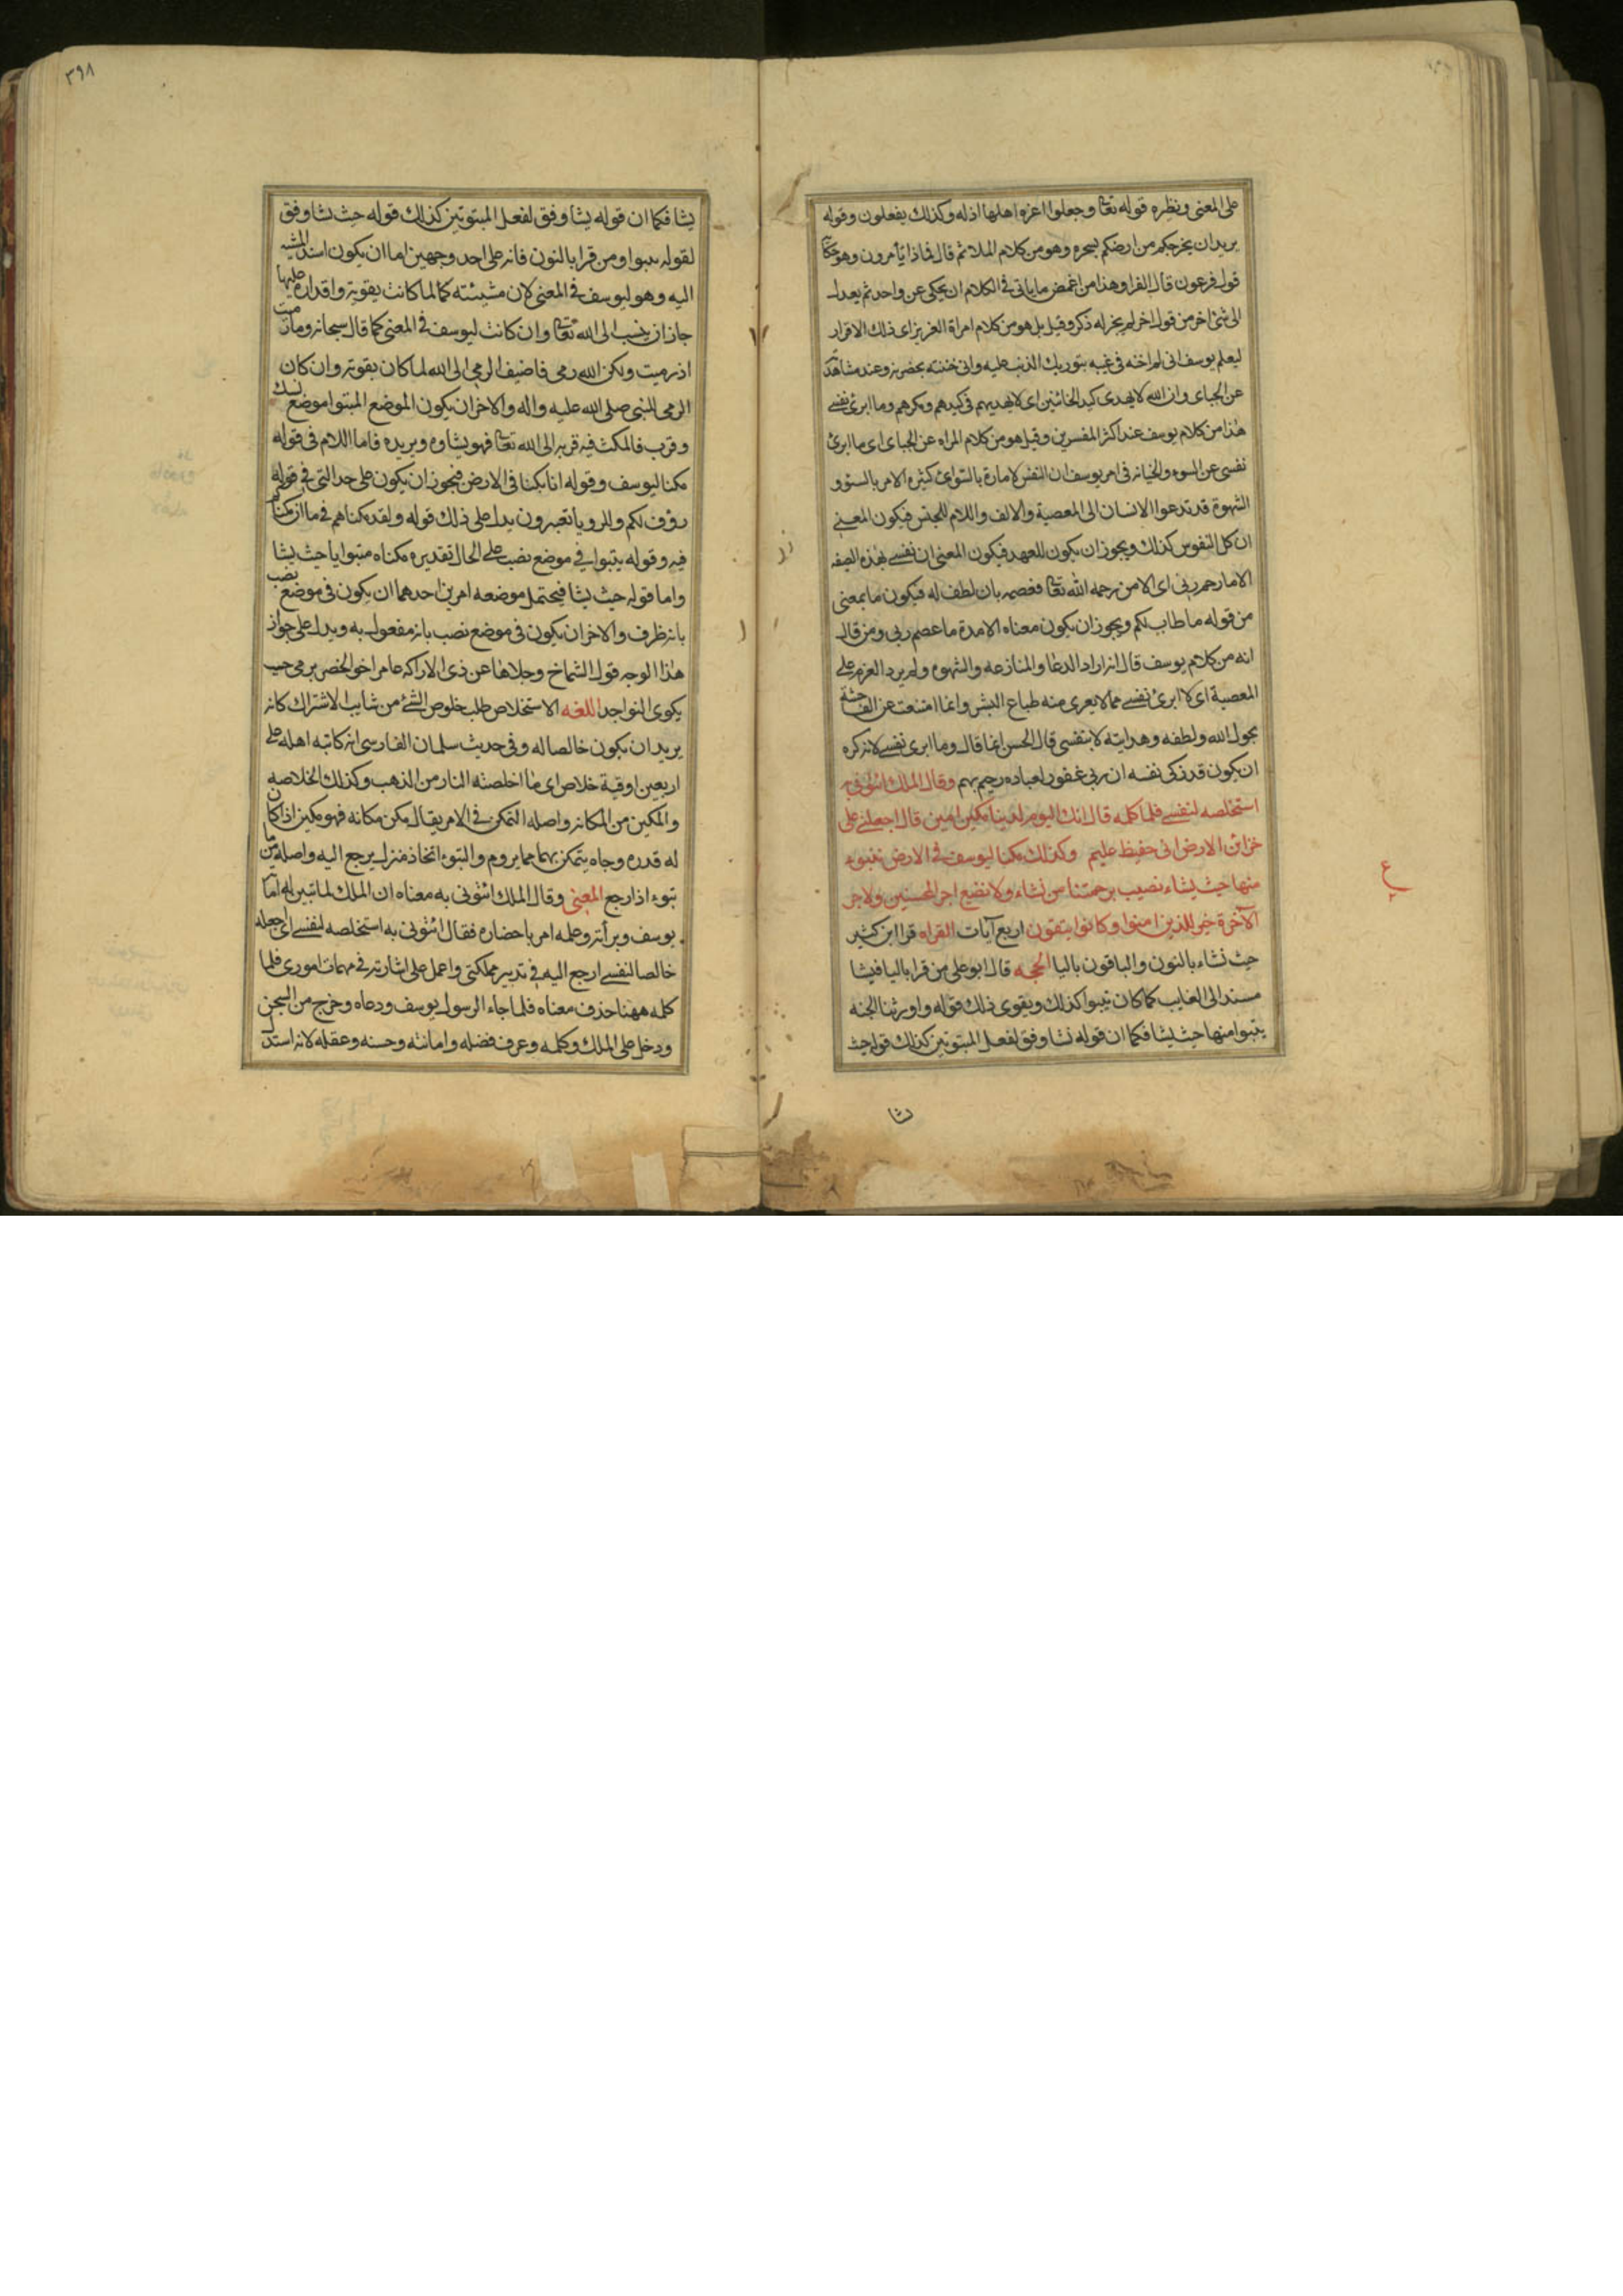 على المعنى ونظيره قوله تعالى وجعلوا اعزه اهلها اذله وكذلك يفعلون وقوله
يريد ان يخرجكم من ارضكم بسحره وهو من كلام الملا ثم قال فماذا تأمرون وهو حكاية
قول فرعون قال الفرا وهذا من اغمض ما ياتى فى الكلام ان يحكى عن واحد ثم يعدل
الى شئ اخر من قول اخر لم يجز له ذكر وقيل بل هو من كلام امراة العزيز اى ذلك الاقرار
ليعلم يوسف انى لم اخنه فى غيبه بتوريك الذنب عليه وان خنته بحضرته وعند مشاهدته
عن الجباى وان الله لا يهدى كيد الخائنين اى لا يهديهم فى كيدهم ومكرهم وما ابرئ نفسى
هذا من كلام يوسف عند اكثر المفسرين وقيل هو من كلام المراه عن الجباى اى ما ابرئ
نفسى عن السوء والخيانه فى امر يوسف ان النفس لامارة بالسوء اى كثيرة الامر بالسوء و
الشهوة قد تدعوا الانسان الى المعصية والالف واللام للجنس فيكون المعنى
ان كل النفوس كذلك ويجوز ان يكون للعهد فيكون المعنى ان نفسى بهذه الصفه
الا ما رحم ربى اى الا من رحمه الله تعالى فعصمه بان لطف له فيكون ما بمعنى
من قوله ما طاب لكم ويجوز ان يكون معناه الا مدة ما عصم ربى ومن قال
انه من كلام يوسف قال انه اراد الدعا والمنازعه والشهوه ولم يرد العزم على
المعصية اى لا ابرئ نفسى مما لا يعرى منه طباع البشر وانما امتنعت عن الفاحشة
بحول الله ولطفه وهدايته لا بنفسى قال الحسن انما قال وما ابرى نفسى لانه كره
ان يكون قد زكى نفسه ان ربى غفور لعباده رحيم بهم وقال الملك ائتونى به
استخلصه لنفسى فلما كلمه قال انك اليوم لدينا مكين امين قال اجعلنى على
خزائن الارض انى حفيظ عليم وكذلك مكنا ليوسف فى الارض يتبوء
منها حيث يشاء نصيب برحمتنا من نشاء ولا نضيع اجر المحسنين ولاجر
الآخرة خير للذين امنوا وكانوا يتقون اربع آيات القراه قرا ابن كثير
حيث نشاء بالنون والباقون باليا الحجه قال ابو على من قرا باليا فيشا
مسند الى الغايب كما كان يتبوا كذلك ويقوى ذلك قوله واورثنا الجنه
يتبوا منها حيث يشا فكما ان قوله نشا وفق لفعل المتبوئين كذلك قوله حيث
يشا
٣٩٨
يشا فكما ان قوله يشا وفق لفعل المتبوئين كذلك قوله حيث يشا وفق
لقوله يتبوا ومن قرا بالنون فانه على احد وجهين اما ان يكون اسند المشيه
اليه وهو ليوسف فى المعنى لان مشيئته لما كانت بقوته واقداره عليها
جاز ان ينسب الى الله تعالى وان كانت ليوسف فى المعنى كما قال سبحانه وما رميت
اذ رميت ولكن الله رمى فاضيف الرمى الى الله لما كان بقوته وان كان
الرمى للنبى صلى الله عليه واله والاخر ان يكون الموضع المتبوا موضع نسك
وقرب فالمكث فيه قربه الى الله تعالى فهو يشاوه ويريده فاما اللام فى قوله
مكنا ليوسف وقوله انا مكنا فى الارض فيجوز ان يكون على حد التى فى قوله
ردف لكم وللرويا تعبرون يدل على ذلك قوله ولقد مكناهم فى ما ان مكناكم
فيه وقوله يتبوا فى موضع نصب على الحال تقديره مكناه متبوا يا حيث يشا
واما قوله حيث يشا فيحتمل موضعه امرين احدهما ان يكون فى موضع نصب
بانه ظرف والاخر ان يكون فى موضع نصب بانه مفعول به ويدل على جواز
هذا الوجه قول الشماخ وحلاها عن ذى الاراكه عامر اخو الخضر يرمى حيث
يكوى النواجد اللغه الاستخلاص طلب خلوص الشئ من شايب الاشتراك كانه
يريد ان يكون خالصا له وفى حديث سلمان الفارسى انه كاتبه اهله على
اربعين اوقية خلاص اى ما اخلصته النار من الذهب وكذلك الخلاصه
والمكين من المكانه واصله التمكن فى الامر يقال مكن مكانه فهو مكين اذا كان
له قدره وجاه يتمكن بهما مما يروم والتبوء اتخاذ منزل يرجع اليه واصله من
تبوء اذا رجع المعنى وقال الملك ائتونى به معناه ان الملك لما تبين له امانة
يوسف وبرأته وعلمه امر باحضاره فقال ائتونى به استخلصه لنفسى اى اجعله
خالصا لنفسى ارجع اليه فى تدبير مملكتى واعمل على اشارته فى مهمات امورى فلما
كلمه ههنا حذف معناه فلما جاء الرسول يوسف ودعاه وخرج من السجن
ودخل على الملك وكلمه وعرف فضله وامانته وحسنه وعقله لانه استدل